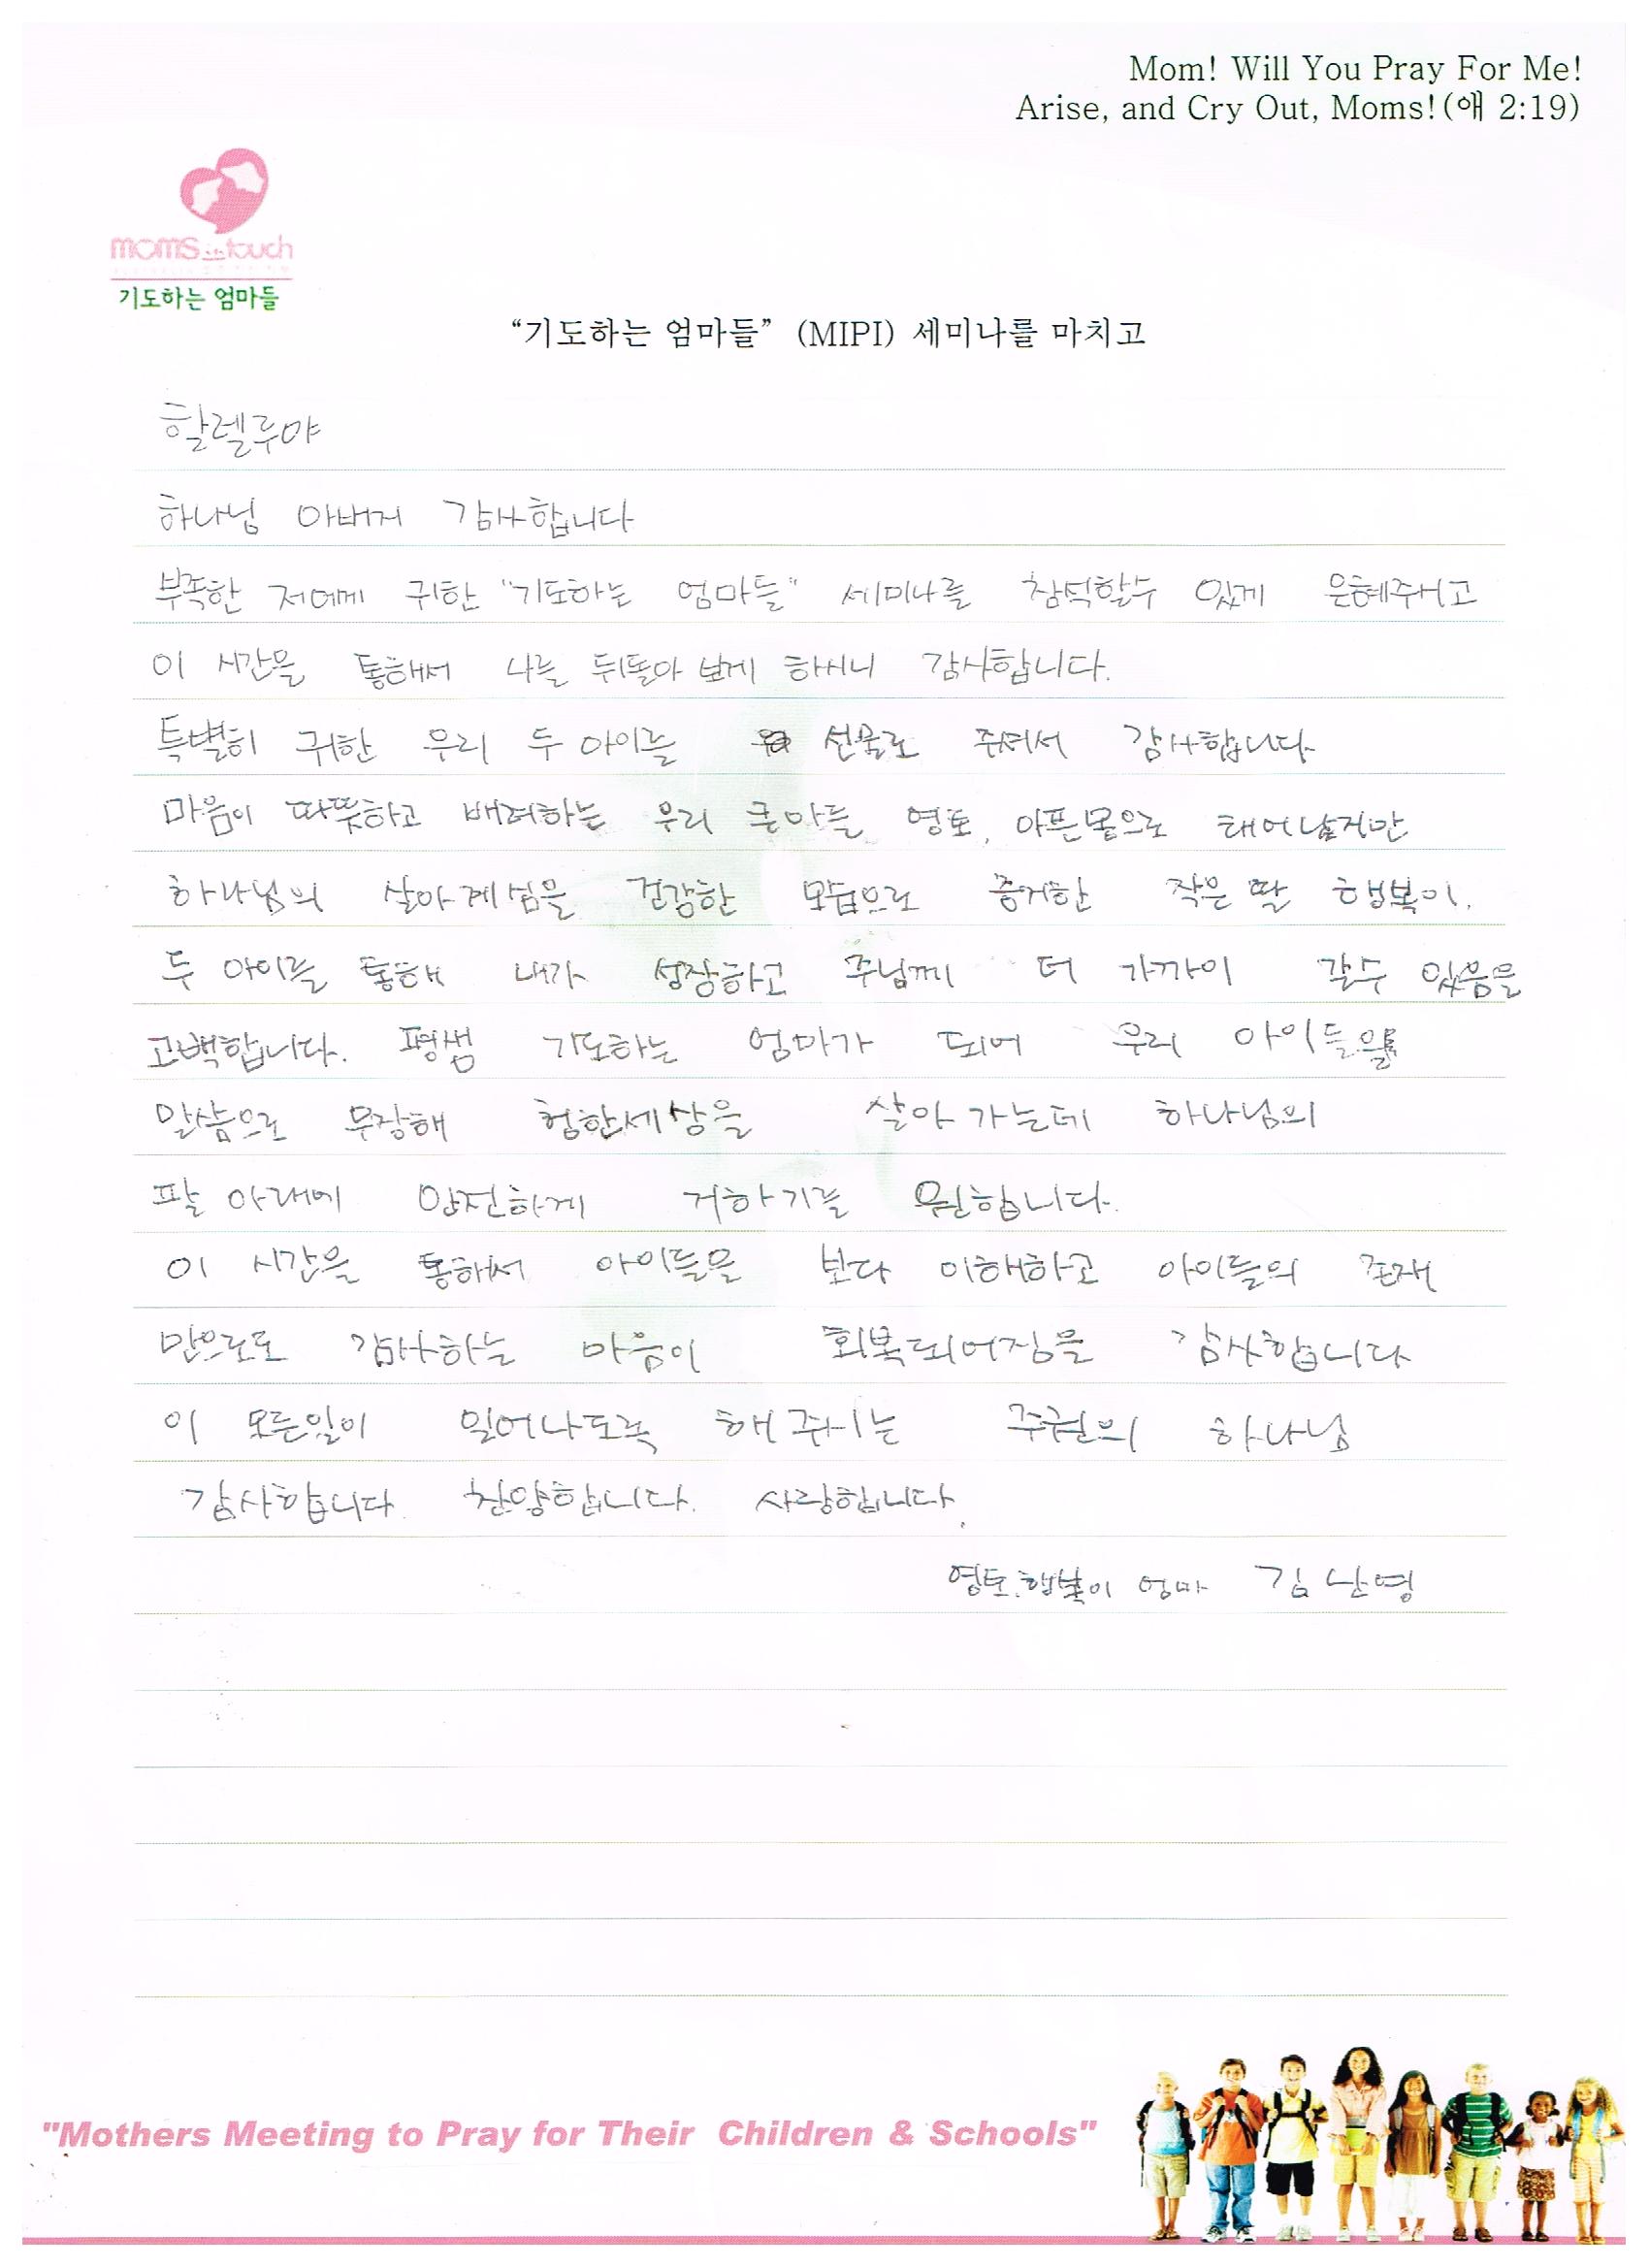 Mom! Will You Pray For Me!
Arise, and Cry Out, Moms!(애 2:19)
moms in touch
기도하는 엄마들
“기도하는 엄마들” (MIPI) 세미나를 마치고
할렐루야
하나님 아버지 감사합니다
부족한 저에게 귀한 "기도하는 엄마들" 세미나를 참석할수 있게 은혜주시고
이 시간을 통해서 나를 뒤돌아 보게 하시니 감사합니다.
특별히 귀한 우리 두 아이를 선물로 주셔서 감사합니다
마음이 따뜻하고 배려하는 우리 큰아들 영토, 아픈몸으로 태어났지만
하나님의 살아계심을 건강한 모습으로 증거한 작은 딸 행복이.
두 아이를 통해 내가 성장하고 주님께 더 가까이 갈수 있음을
고백합니다. 평생 기도하는 엄마가 되어 우리 아이들을
말씀으로 무장해 험한세상을 살아 가는데 하나님의
팔 아래에 안전하게 거하기를 원합니다.
이 시간을 통해서 아이들을 보다 이해하고 아이들의 존재
만으로도 감사하는 마음이 회복되어짐을 감사합니다
이 모든일이 일어나도록 해 주시는 주권의 하나님
감사합니다. 찬양합니다. 사랑합니다.
영토.행복이 엄마 김난영
"Mothers Meeting to Pray for Their Children & Schools"